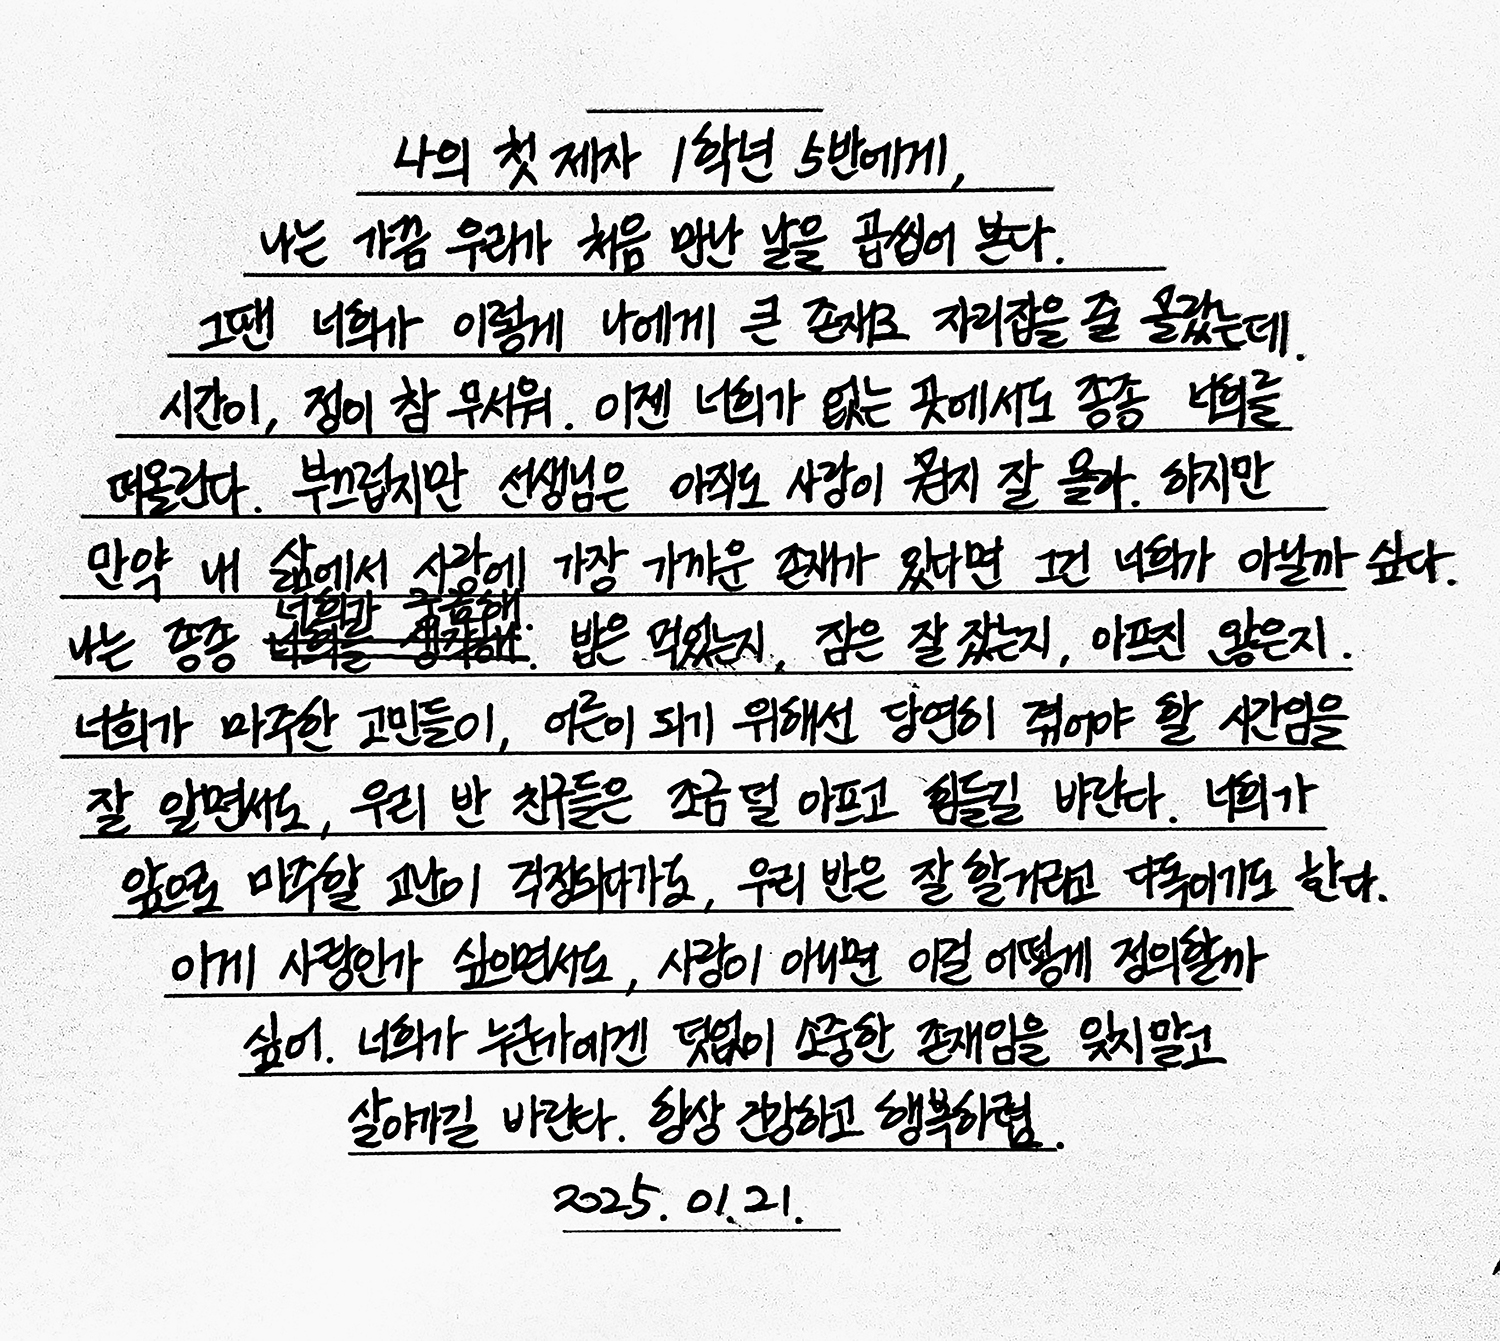 나의 첫 제자 1학년 5반에게,
나는 가끔 우리가 처음 만난 날을 곱씹어 본다.
그땐 너희가 이렇게 나에게 큰 존재로 자리잡을 줄 몰랐는데.
시간이, 정이 참 무서워. 이젠 너희가 없는 곳에서도 종종 너희를
떠올린다. 부끄럽지만 선생님은 아직도 사랑이 뭔지 잘 몰라. 하지만
만약 내 삶에서 사랑에 가장 가까운 존재가 있다면 그건 너희가 아닐까 싶다.
나는 종종 너희가 궁금해. 밥은 먹었는지, 잠은 잘 잤는지, 아프진 않은지.
너희가 마주한 고민들이, 어른이 되기 위해선 당연히 겪어야 할 시간임을
잘 알면서도, 우리 반 친구들은 조금 덜 아프고 힘들길 바란다. 너희가
앞으로 마주할 고난이 걱정되다가도, 우리 반은 잘 할거라고 다독이기도 한다.
이게 사랑인가 싶으면서도, 사랑이 아니면 이걸 어떻게 정의할까
싶어. 너희가 누군가에겐 덧없이 소중한 존재임을 잊지말고
살아가길 바란다. 항상 건강하고 행복하렴.
2025. 01. 21.